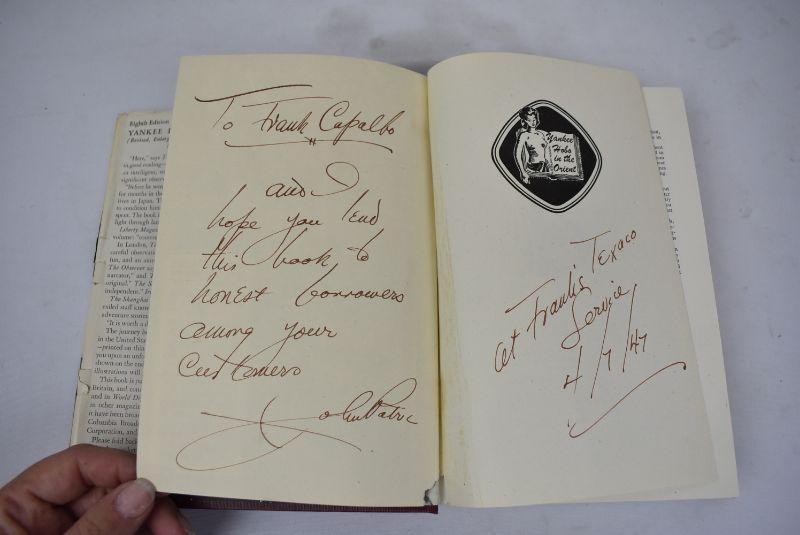 Eighth Edition
YANKEE
(Revised, Enlarg
"Here," says
in good reading—
an intelligent, wit
significant observ
"Before he went
for months in the
lives in Japan. T
to condition him
spoor. The book i
light through lan
Liberty Magaz
volume: "conver
In London, T
careful observatio
fun, and an autho
The Observer
narrator," and
original." The S
independent."
The Shanghai
exiled staff know
adventure stories
"It is worth a d
The journey be
in the United State
—printed on thi
you upon an unf
shown on the en
illustrations will
This book is put
Britain, and con
and in World Di
as other magazin
it have been broa
Columbia Broad
Corporation, and
Please fold back
To Frank Capalbo
and I
hope you lend
this book to
honest borrowers
among your
customers
John Patric
Yankee
Hobo
in the
Orient
At Frank's Texaco
Service
4/7/47